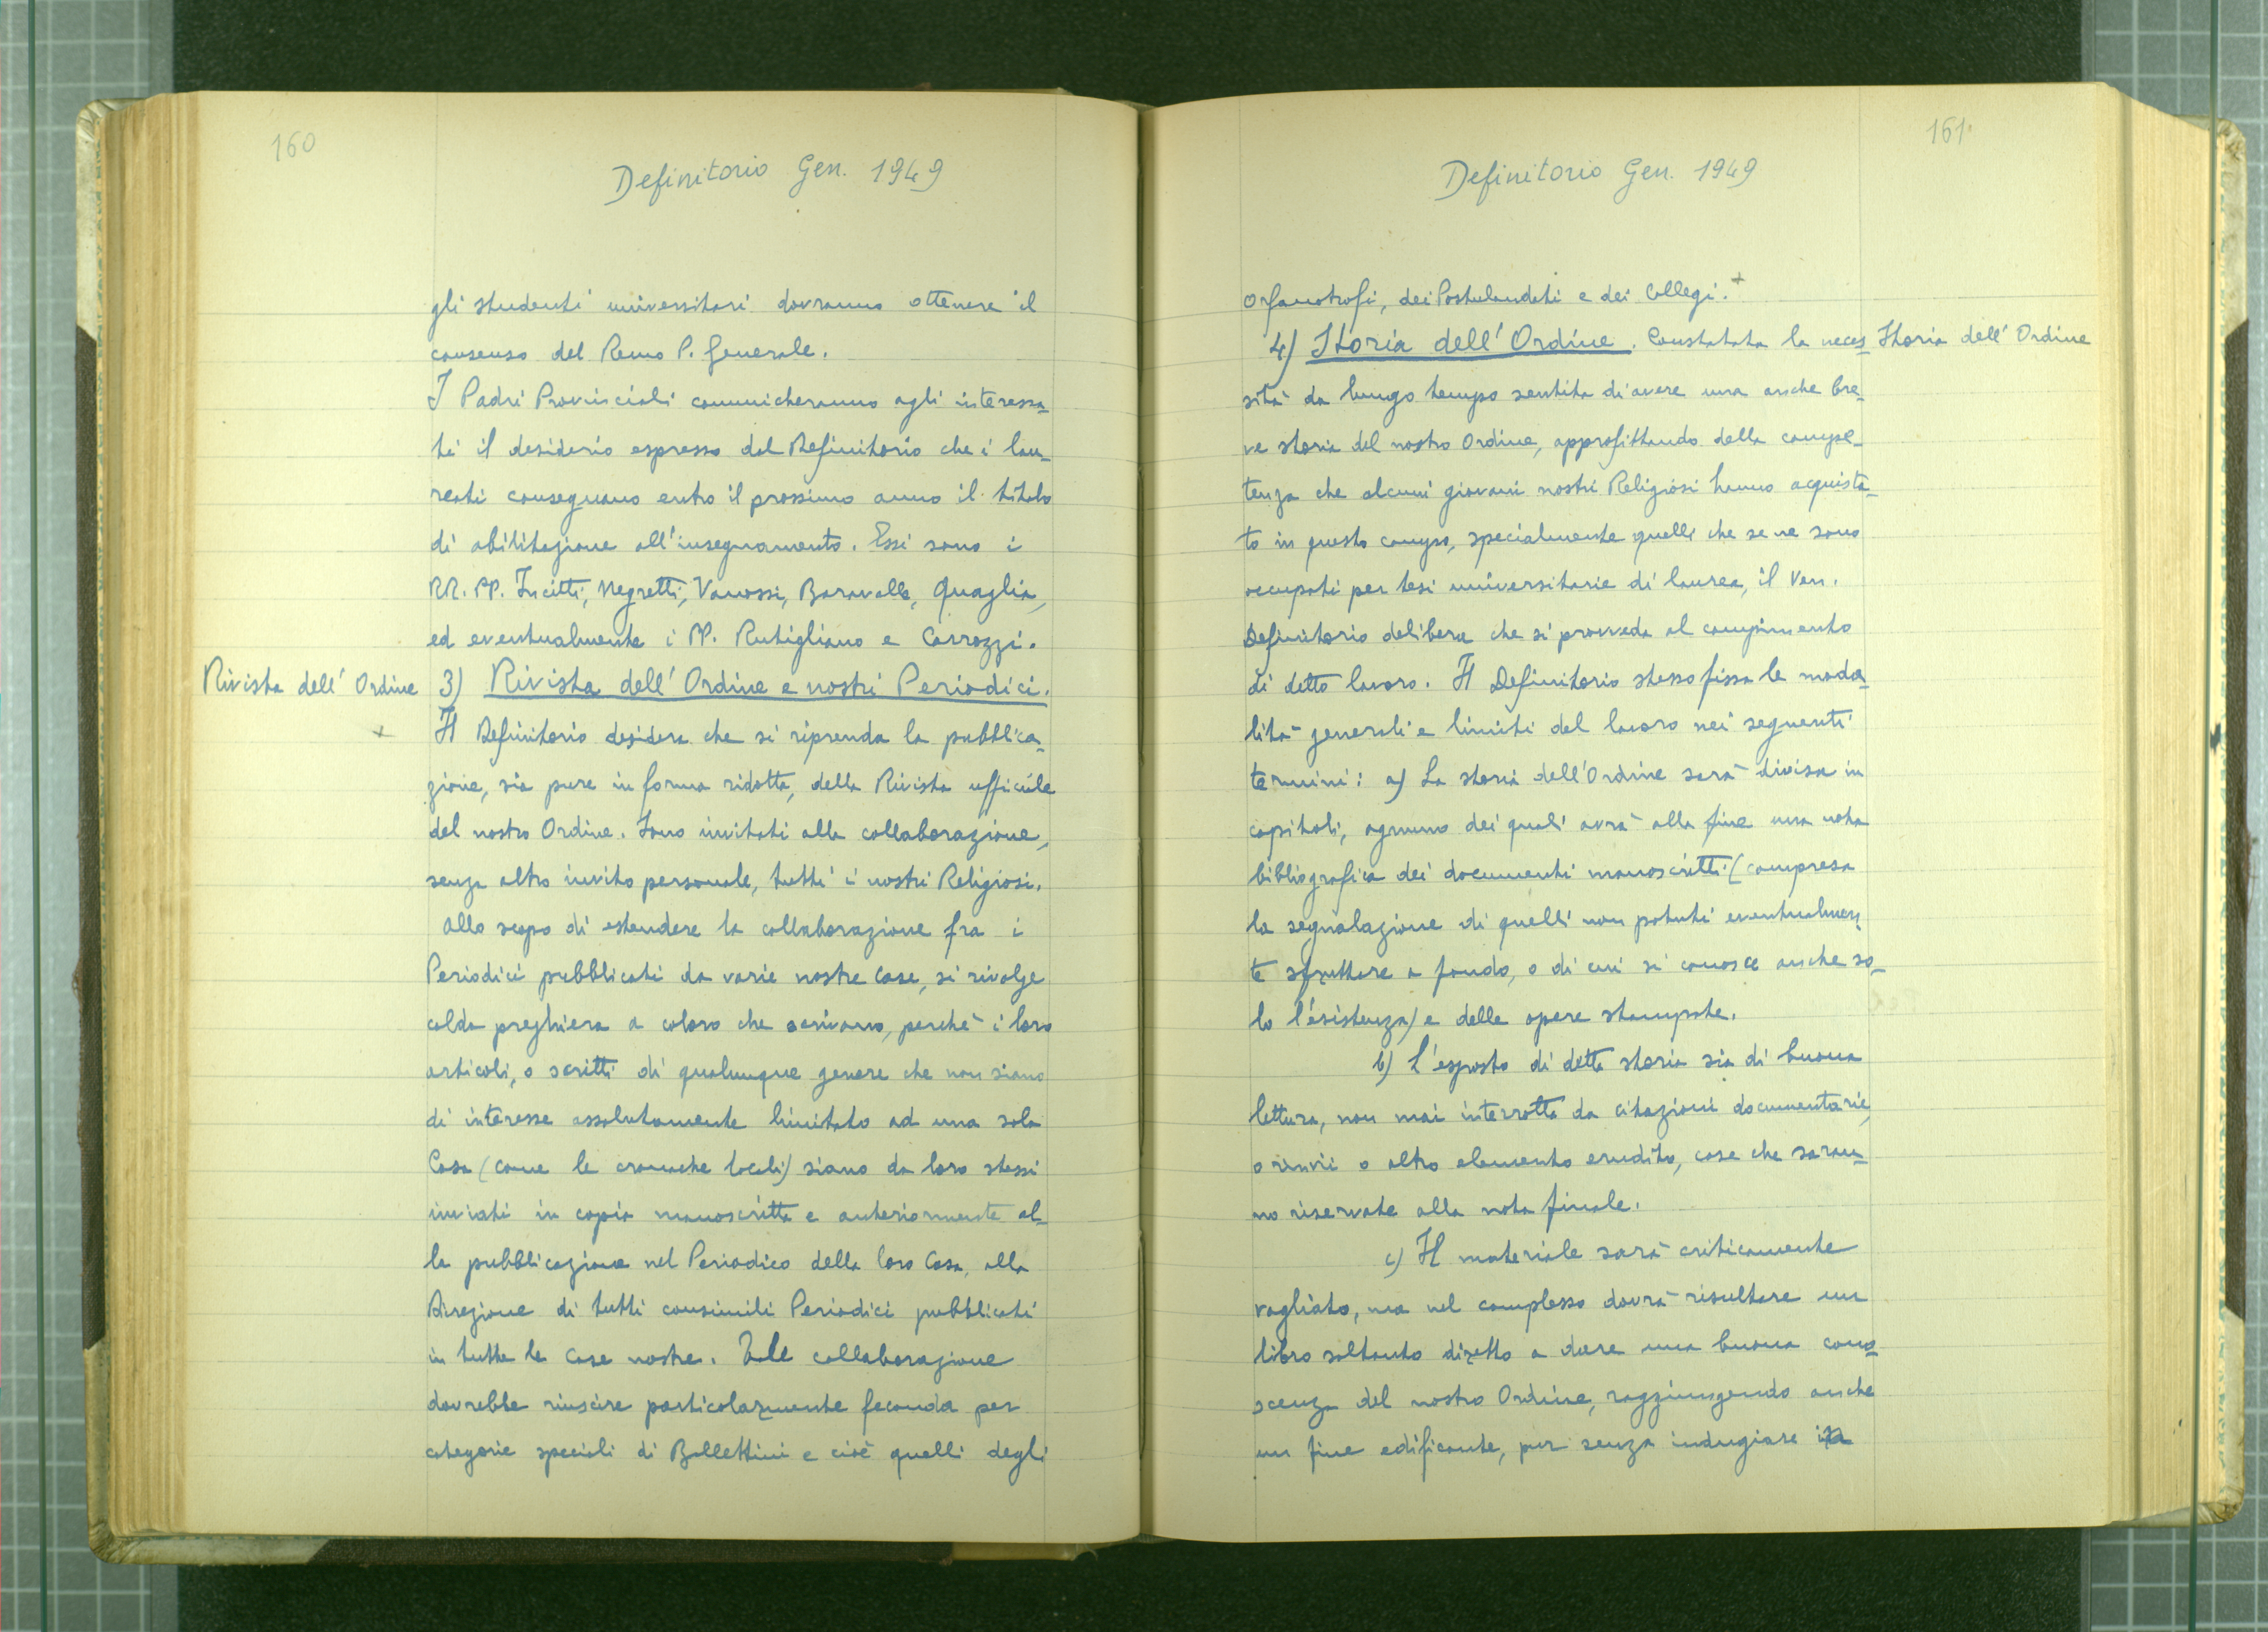 160
Definitorio Gen. 1949
gli studenti universitari dovranno ottenere il
consenso del Remo P. Generale.
I Padri Provinciali comunicheranno agli interessa-
ti il desiderio espresso dal Definitorio che i lau-
reati conseguano entro il prossimo anno il titolo
di abilitazione all'insegnamento. Essi sono i
RR. PP. Incitti, Negretti, Vanossi, Baravalle, Quaglia,
ed eventualmente i PP. Rutigliano e Carrozzi.
Rivista dell'Ordine
3) Rivista dell'Ordine e nostri Periodici.
+
Il Definitorio desidera che si riprenda la pubblica-
zione, sia pure in forma ridotta, della Rivista ufficiale
del nostro Ordine. Sono invitati alla collaborazione,
senza altro invito personale, tutti i nostri Religiosi.
Allo scopo di estendere la collaborazione fra i
Periodici pubblicati da varie nostre Case, si rivolge
calda preghiera a coloro che scrivono, perchè i loro
articoli, o scritti di qualunque genere che non siano
di interesse assolutamente limitato ad una sola
Casa (come le cronache locali) siano da loro stessi
inviati in copia manoscritta e anteriormente al-
la pubblicazione nel Periodico della loro Casa, alla
Direzione di tutti consimili Periodici pubblicati
in tutte le Case nostre. Tale collaborazione
dovrebbe riuscire particolarmente feconda per
categorie speciali di Bollettini e cioè quelli degli
161
Definitorio Gen. 1949
Orfanotrofi, dei Postulandati e dei Collegi. +
4) Storia dell'Ordine. Constatata la neces-
Storia dell'Ordine
sità da lungo tempo sentita di avere una anche bre-
ve storia del nostro Ordine, approfittando della compe-
tenza che alcuni giovani nostri Religiosi hanno acquista-
to in questo campo, specialmente quelli che se ne sono
occupati per tesi universitarie di laurea, il Ven.
Definitorio delibera che si provveda al compimento
di detto lavoro. Il Definitorio stesso fissa le moda-
lità generali e limiti del lavoro nei seguenti
termini: a) La storia dell'Ordine sarà divisa in
capitoli, ognuno dei quali avrà alla fine una nota
bibliografica dei documenti manoscritti (compresa
la segnalazione di quelli non potuti eventualmen-
te sfruttare a fondo, o di cui si conosce anche so-
lo l'esistenza) e delle opere stampate.
b) L'esposto di detta storia sia di buona
lettura, non mai interrotta da citazioni documentarie,
o rinvii o altro elemento erudito, cose che saran-
no riservate alla nota finale.
c) Il materiale sarà criticamente
vagliato, ma nel complesso dovrà risultare un
libro soltanto diretto a dare una buona cono-
scenza del nostro Ordine, raggiungendo anche
un fine edificante, pur senza indugiare in